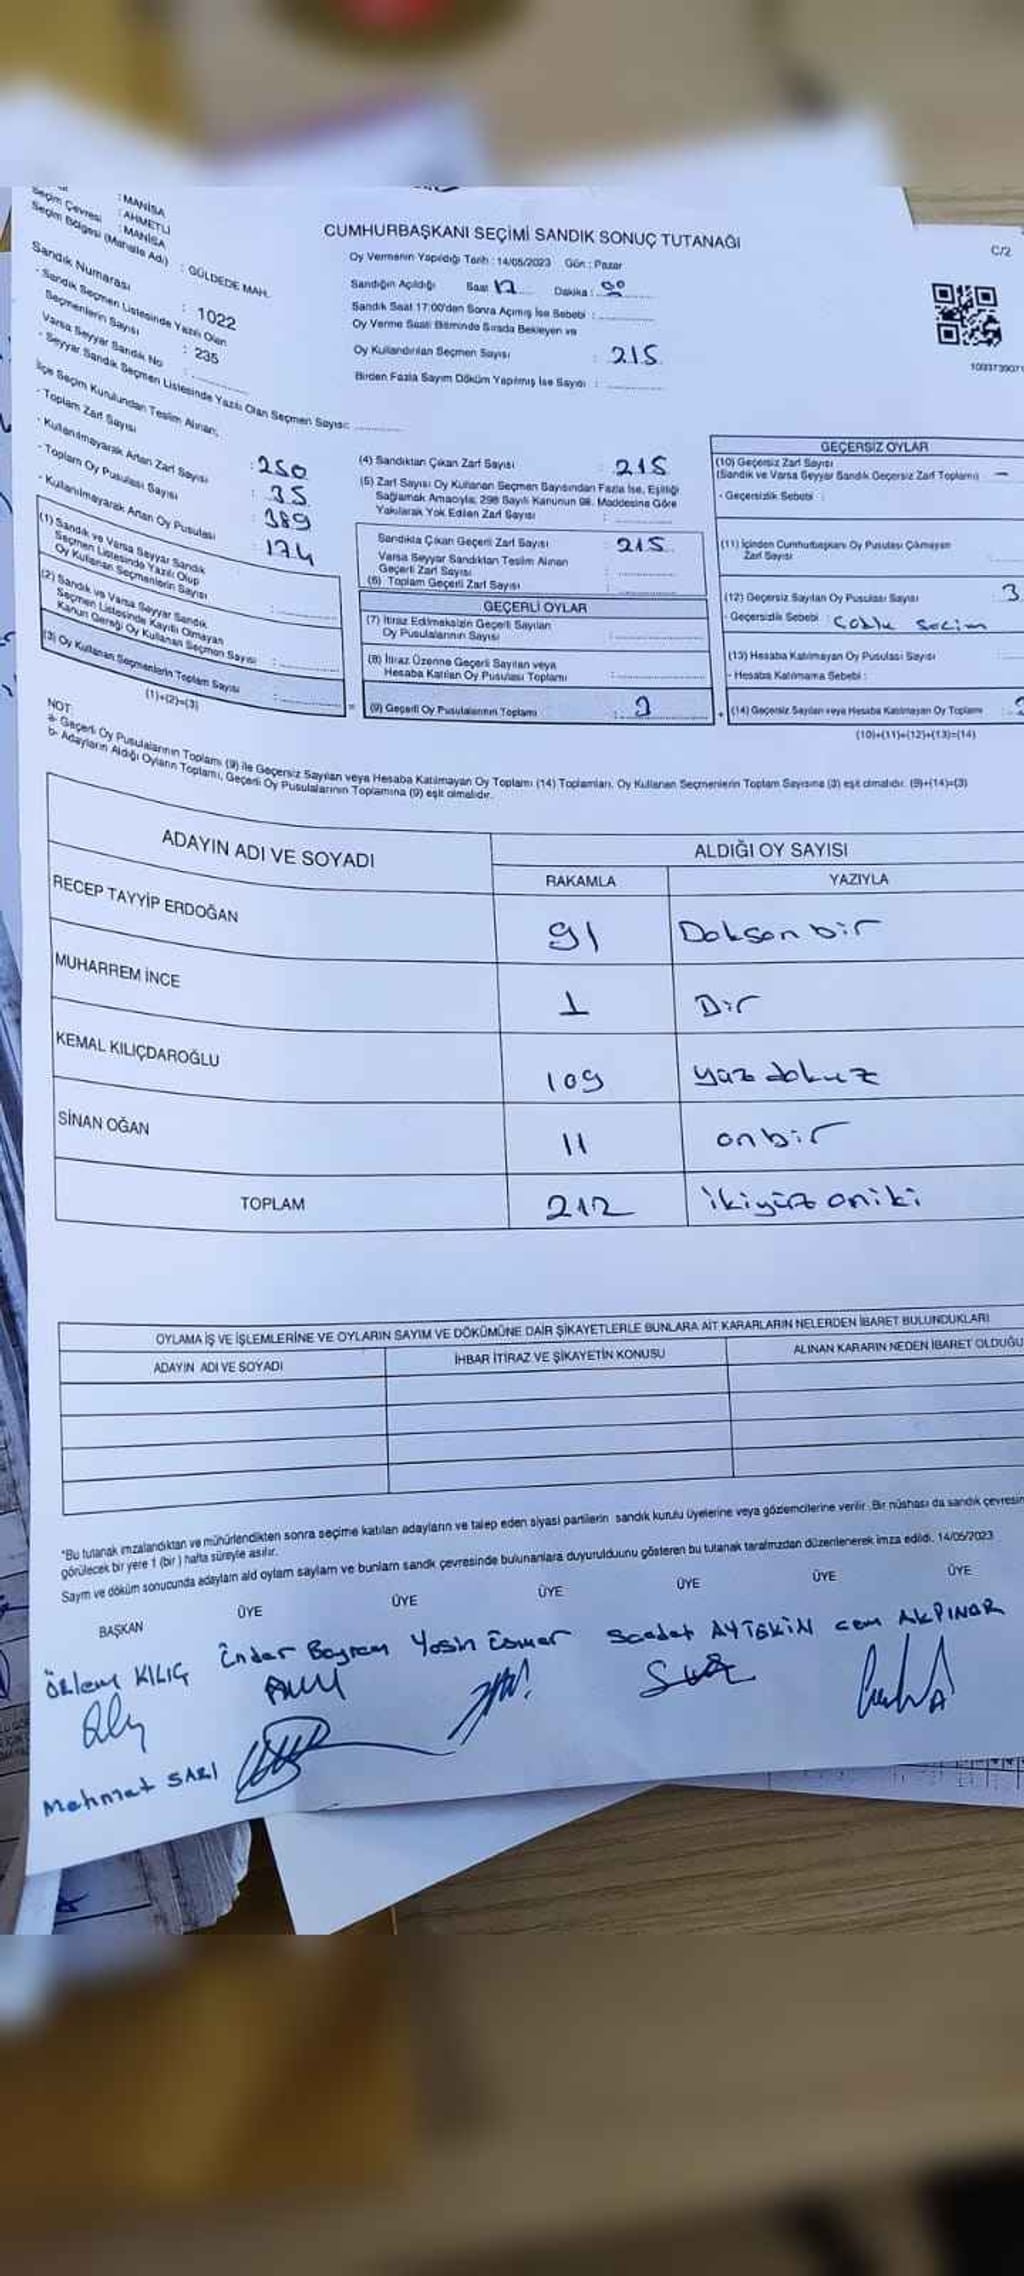 : MANİSA
Seçim Çevresi : AHMETLİ
: MANİSA
Seçim Bölgesi (Mahalle Adı) : GÜLDEDE MAH.
Sandık Numarası : 1022
- Sandık Seçmen Listesinde Yazılı Olan
Seçmenlerin Sayısı : 235
Varsa Seyyar Sandık No :
- Seyyar Sandık Seçmen Listesinde Yazılı Olan Seçmen Sayısı:
CUMHURBAŞKANI SEÇİMİ SANDIK SONUÇ TUTANAĞI
C/2
Oy Vermenin Yapıldığı Tarih : 14/05/2023 Gün : Pazar
Sandığın Açıldığı Saat 17 Dakika : 00
Sandık Saat 17:00'den Sonra Açılmış İse Sebebi :
Oy Verme Saati Bitiminde Sırada Bekleyen ve
Oy Kullandırılan Seçmen Sayısı : 215
Birden Fazla Sayım Döküm Yapılmış İse Sayıdı :
İlçe Seçim Kurulundan Teslim Alınan;
- Toplam Zarf Sayısı : 250
- Kullanılmayarak Artan Zarf Sayısı : 35
- Toplam Oy Pusulası Sayısı : 389
- Kullanılmayarak Artan Oy Pusulası : 174
(1) Sandık ve Varsa Seyyar Sandık
Seçmen Listesinde Yazılı Olup
Oy Kullanan Seçmenlerin Sayısı :
(2) Sandık ve Varsa Seyyar Sandık
Seçmen Listesinde Kayıtlı Olmayan
Kanun Gereği Oy Kullanan Seçmen Sayısı :
(3) Oy Kullanan Seçmenlerin Toplam Sayısı :
(1)+(2)=(3)
(4) Sandıktan Çıkan Zarf Sayısı : 215
(5) Zarf Sayısı Oy Kullanan Seçmen Sayısından Fazla İse, Eşitliği
Sağlamak Amacıyla; 298 Sayılı Kanunun 98. Maddesine Göre
Yakılarak Yok Edilen Zarf Sayısı :
Sandıkta Çıkan Geçerli Zarf Sayısı : 215
Varsa Seyyar Sandıktan Teslim Alınan
Geçerli Zarf Sayısı :
(6) Toplam Geçerli Zarf Sayısı :
GEÇERLİ OYLAR
(7) İtiraz Edilmeksizin Geçerli Sayılan
Oy Pusulalarının Sayısı :
(8) İtiraz Üzerine Geçerli Sayılan veya
Hesaba Katılan Oy Pusulası Toplamı :
= (9) Geçerli Oy Pusulalarının Toplamı :
GEÇERSİZ OYLAR
(10) Geçersiz Zarf Sayısı
(Sandık ve Varsa Seyyar Sandık Geçersiz Zarf Toplamı) : -
- Geçersizlik Sebebi :
(11) İçinden Cumhurbaşkanı Oy Pusulası Çıkmayan
Zarf Sayısı
(12) Geçersiz Sayılan Oy Pusulası Sayısı : 3
- Geçersizlik Sebebi :
(13) Hesaba Katılmayan Oy Pusulası Sayısı
- Hesaba Katılmama Sebebi :
+ (14) Geçersiz Sayılan veya Hesaba Katılmayan Oy Toplamı :
(10)+(11)+(12)+(13)=(14)
NOT:
a- Geçerli Oy Pusulalarının Toplamı (9) ile Geçersiz Sayılan veya Hesaba Katılmayan Oy Toplamı (14) Toplamları, Oy Kullanan Seçmenlerin Toplam Sayısına (3) eşit olmalıdır. (9)+(14)=(3)
b- Adayların Aldığı Oyların Toplamı, Geçerli Oy Pusulalarının Toplamına (9) eşit olmalıdır.
ADAYIN ADI VE SOYADI
ALDIĞI OY SAYISI
RAKAMLA YAZIYLA
RECEP TAYYİP ERDOĞAN 91 Doksan bir
MUHARREM İNCE 1 Bir
KEMAL KILIÇDAROĞLU 109 yüz dokuz
SİNAN OĞAN 11 on bir
TOPLAM 212 ikiyüz oniki
OYLAMA İŞ VE İŞLEMLERİNE VE OYLARIN SAYIM VE DÖKÜMÜNE DAİR ŞİKAYETLERLE BUNLARA AİT KARARLARIN NELERDEN İBARET BULUNDUKLARI
ADAYIN ADI VE SOYADI İHBAR İTİRAZ VE ŞİKAYETİN KONUSU ALINAN KARARIN NEDEN İBARET OLDUĞU
*Bu tutanak imzalandıktan ve mühürlendikten sonra seçime katılan adayların ve talep eden siyasi partilerin sandık kurulu üyelerine veya gözlemcilerine verilir. Bir nüshası da sandık çevresin
görülecek bir yere 1 (bir) hafta süreyle asılır.
Sayım ve döküm sonucunda adayların aldı oyların sayıların ve bunların sandık çevresinde bulunanlara duyurulduunu gösteren bu tutanak tarafımızdan düzenlenerek imza edildi. 14/05/2023
BAŞKAN ÜYE ÜYE ÜYE ÜYE ÜYE ÜYE
Özlem KILIÇ Ender Bayram Yasin Saadet AYTEKİN Cem AKPINAR
Mehmet SARI